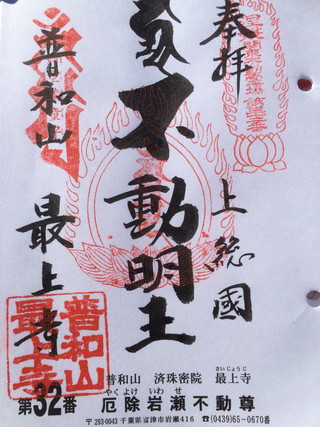 奉拝
上総國
不動明王
普和山
最上寺
普和山
最上寺
第32番
普和山 済珠密院 最上寺
さいじょうじ
やくよけ いわ せ
厄除岩瀬不動尊
〒293-0043 千葉県富津市岩瀬416 ☎(0439)65-0670番